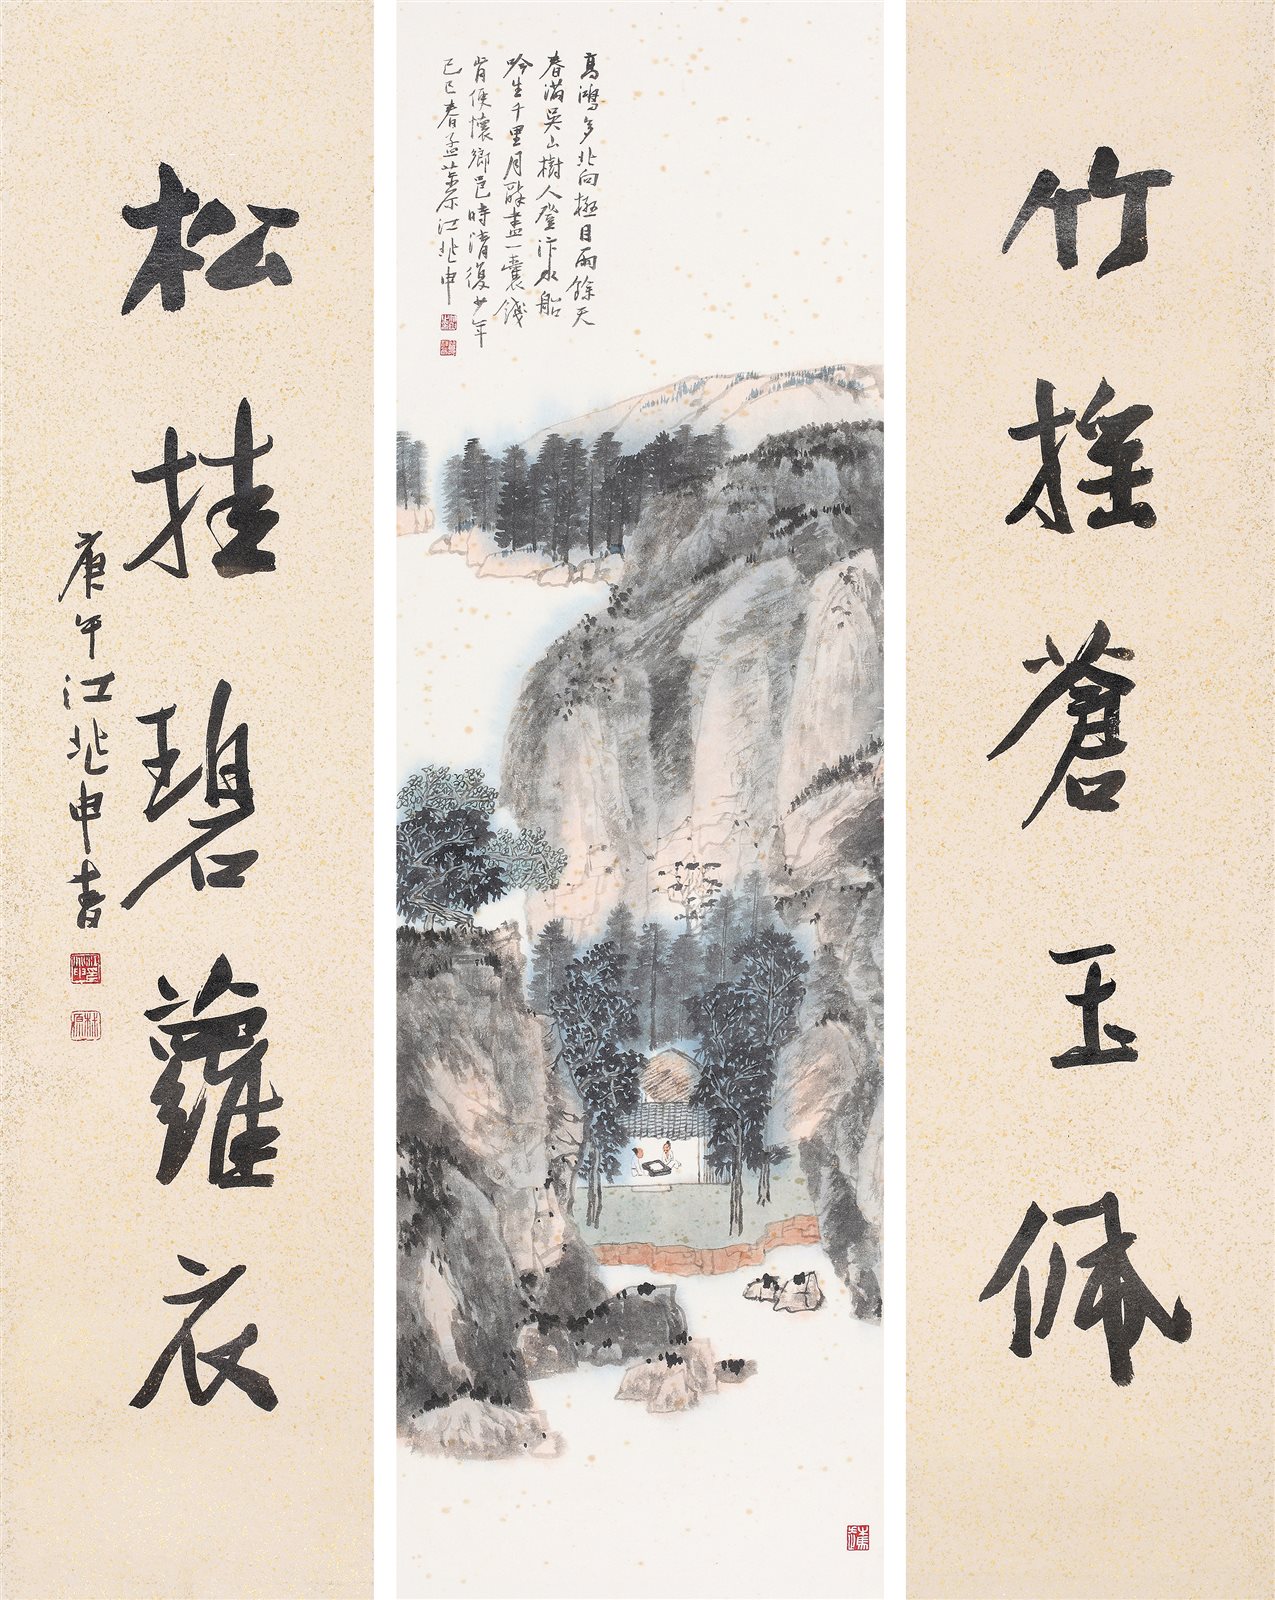 竹摇蒼玉佩
高鴻多北向極目雨餘天
春滿吳山樹人登汴水船
吟生千里月醉盡一囊錢
肯便懷鄉邑時清復少年
己巳春孟茮原江兆申
松挂碧蘿衣
庚午江兆申書